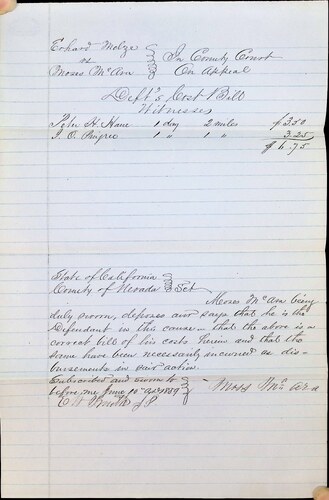 Erhard Molze
vs
Moses McAra
In County Court
On Appeal
Deft's Cost Bill
Witnesses
John H. Hane 1 day 2 miles $3.50
J. O. Pingree 1 " 1 " 3.25
$6.75
State of California
County of Nevada Sct
Moses McAra being
duly sworn, deposes and says that he is the
Defendant in this cause – that the above is a
correct bill of his costs herein and that the
same have been necessarily incurred as dis-
bursements in said action.
Subscribed and sworn to
before me June 10th
Moses McAra
J.P.